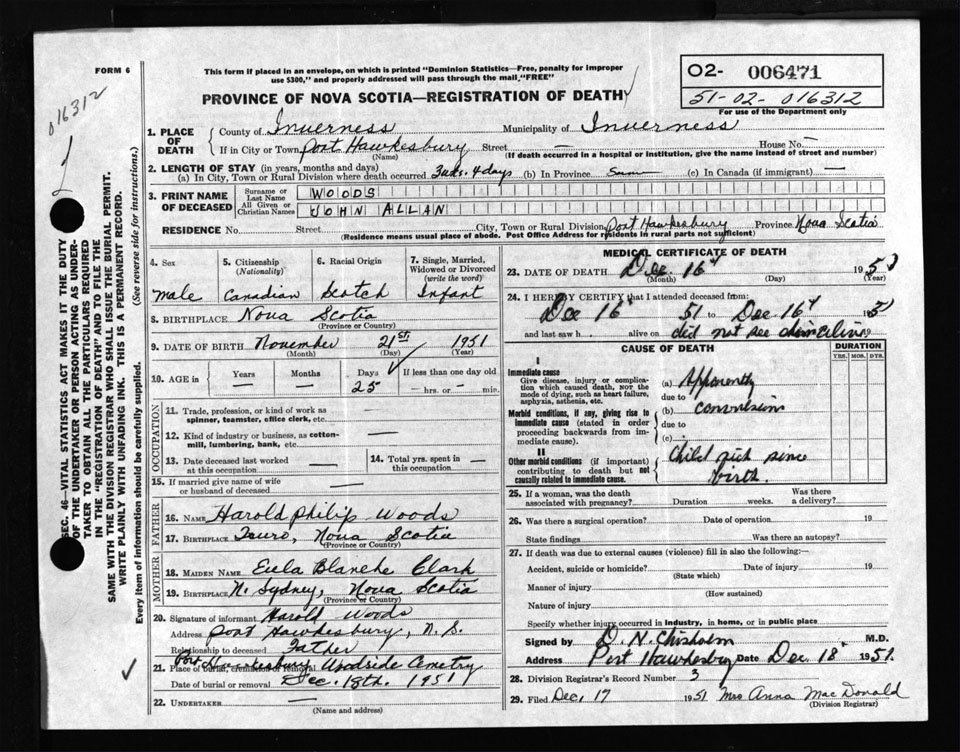 FORM 6
This form if placed in an envelope, on which is printed "Dominion Statistics—Free, penalty for improper
use $300," and properly addressed will pass through the mail "FREE"
PROVINCE OF NOVA SCOTIA—REGISTRATION OF DEATH
O2- 006471
51-02-016312
For use of the Department only
016312
SEC. 46—VITAL STATISTICS ACT MAKES IT THE DUTY
OF THE UNDERTAKER OR PERSON ACTING AS UNDER-
TAKER TO OBTAIN ALL THE PARTICULARS REQUIRED
IN THE "REGISTRATION OF DEATH" AND TO FILE THE
SAME WITH THE DIVISION REGISTRAR WHO SHALL ISSUE THE BURIAL PERMIT.
WRITE PLAINLY WITH UNFADING INK. THIS IS A PERMANENT RECORD.
Every item of information should be carefully supplied. (See reverse side for instructions.)
1. PLACE OF DEATH County of Inverness Municipality of Inverness
If in City or Town Port Hawkesbury Street — House No. —
(Name) (If death occurred in a hospital or institution, give the name instead of street and number)
2. LENGTH OF STAY (in years, months and days)
(a) In City, Town or Rural Division where death occurred 3 wks. 4 days (b) In Province Same (c) In Canada (if immigrant) —
3. PRINT NAME OF DECEASED Surname or Last Name WOODS
All Given or Christian Names JOHN ALLAN
RESIDENCE No. Street City, Town or Rural Division Port Hawkesbury Province Nova Scotia
(Residence means usual place of abode. Post Office Address for residents in rural parts not sufficient)
4. Sex 5. Citizenship (Nationality) 6. Racial Origin 7. Single, Married, Widowed or Divorced (write the word)
Male Canadian Scotch Infant
8. BIRTHPLACE Nova Scotia
(Province or Country)
9. DATE OF BIRTH November 21st. 1951
(Month) (Day) (Year)
10. AGE in Years Months Days If less than one day old
— — 25 — hrs. or — min.
OCCUPATION
11. Trade, profession, or kind of work as
spinner, teamster, office clerk, etc. —
12. Kind of industry or business, as cotton-
mill, lumbering, bank, etc. —
13. Date deceased last worked at this occupation — 14. Total yrs. spent in this occupation —
15. If married give name of wife
or husband of deceased —
FATHER
16. NAME Harold Philip Woods
17. BIRTHPLACE Truro, Nova Scotia
(Province or Country)
MOTHER
18. MAIDEN NAME Eula Blanche Clark
19. BIRTHPLACE N. Sydney, Nova Scotia
(Province or Country)
20. Signature of informant Harold Woods
Address Port Hawkesbury, N. S.
Relationship to deceased Father
21. Place of burial, cremation or removal Port Hawkesbury Woodside Cemetry
Date of burial or removal Dec. 18th. 1951
22. UNDERTAKER —
(Name and address)
MEDICAL CERTIFICATE OF DEATH
23. DATE OF DEATH Dec. 16th 195
(Month) (Day)
24. I HEREBY CERTIFY that I attended deceased from:
Dec 16 51 to Dec 16th 1951
and last saw h alive on did not see him alive 19
CAUSE OF DEATH DURATION
YRS. MOS. DYS.
I
Immediate cause
Give disease, injury or complica-
tion which caused death, NOT the
mode of dying, such as heart failure,
asphyxia, asthenia, etc.
(a) Apparently
due to
Morbid conditions, if any, giving rise to
immediate cause (stated in order
proceeding backwards from im-
mediate cause).
(b) convulsion
due to
(c)
II
Other morbid conditions (if important)
contributing to death but not
causally related to immediate cause.
Child sick since
birth.
25. If a woman, was the death
associated with pregnancy? Duration weeks. Was there a delivery?
26. Was there a surgical operation? Date of operation 19
State findings Was there an autopsy?
27. If death was due to external causes (violence) fill in also the following:—
Accident, suicide or homicide? Date of injury 19
(State which)
Manner of injury
(How sustained)
Nature of injury
Specify whether injury occurred in industry, in home, or in public place
Signed by D. N. Chisholm M.D.
Address Port Hawkesbury Date Dec. 18 1951.
28. Division Registrar's Record Number 3
29. Filed Dec. 17 1951 Mrs Anna MacDonald
(Division Registrar)